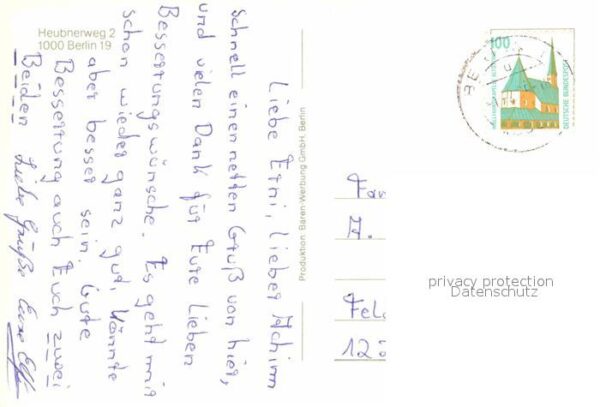 Heubnerweg 2
1000 Berlin 19
Liebe Erni, lieber Achim
schnell einen netten Gruß von hier,
und vielen Dank für Eure lieben
Besserungswünsche. Es geht mir
schon wieder ganz gut, könnte
aber besser sein. Gute
Besserung auch Euch zwei
Beiden Liebe Grüße Eure
Produktion: Bären-Werbung GmbH, Berlin
100
DEUTSCHE BUNDESPOST
Fam
A.
Fel
12
privacy protection
Datenschutz